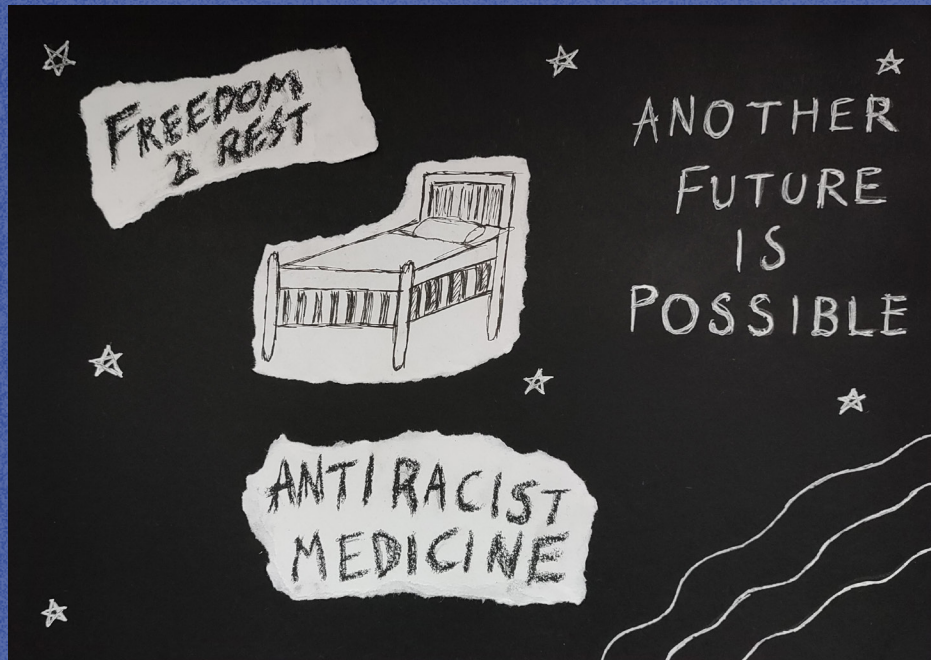 FREEDOM
2 REST
ANOTHER
FUTURE
IS
POSSIBLE
ANTI RACIST
MEDICINE